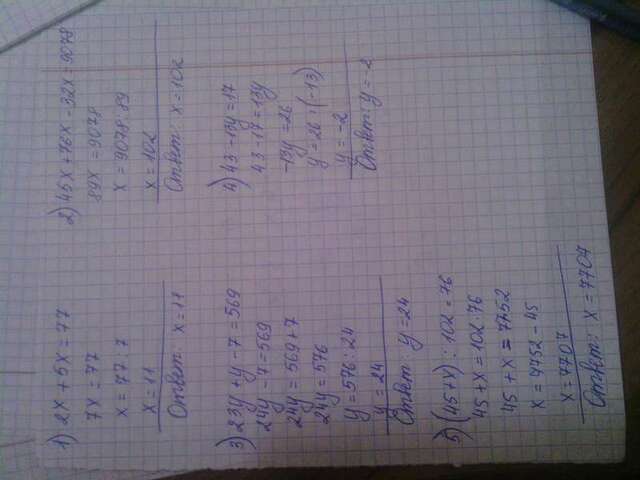 1) 2x + 5x = 77
7x = 77
x = 77 : 7
x = 11
Ответ: x = 11
2) 45x + 76x - 32x = 9078
89x = 9078
x = 9078 : 89
x = 102
Ответ: x = 102
3) 23y + y - 7 = 569
24y - 7 = 569
24y = 569 + 7
24y = 576
y = 576 : 24
y = 24
Ответ: y = 24
4) 43 - 13y = 17
43 - 17 = 13y
-13y = 26
y = 26 : (-13)
y = -2
Ответ: y = -2
5) (45 + x) : 102 = 76
45 + x = 102 · 76
45 + x = 7752
x = 7752 - 45
x = 7707
Ответ: x = 7707